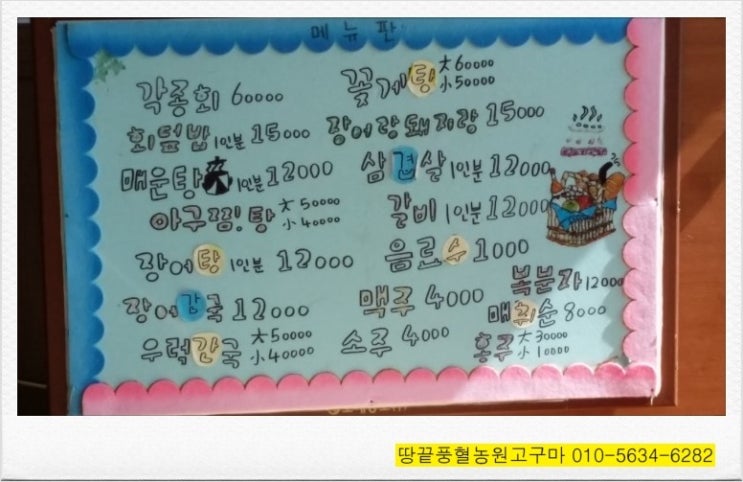 메뉴판
각종회 60000
꽃게탕 大 60000
小 50000
회덮밥 1인분 15000
장어랑돼지랑 15000
매운탕 1인분 12000
삼겹살 1인분 12000
아구찜!탕 大 50000
小 40000
갈비 1인분 12000
장어탕 1인분 12000
음료수 1000
복분자 12000
장어간국 12000
맥주 4000
매취순 8000
우럭간국 大 50000
小 40000
소주 4000
홍주 大 30000
小 10000
땅끝풍혈농원고구마 010-5634-6282